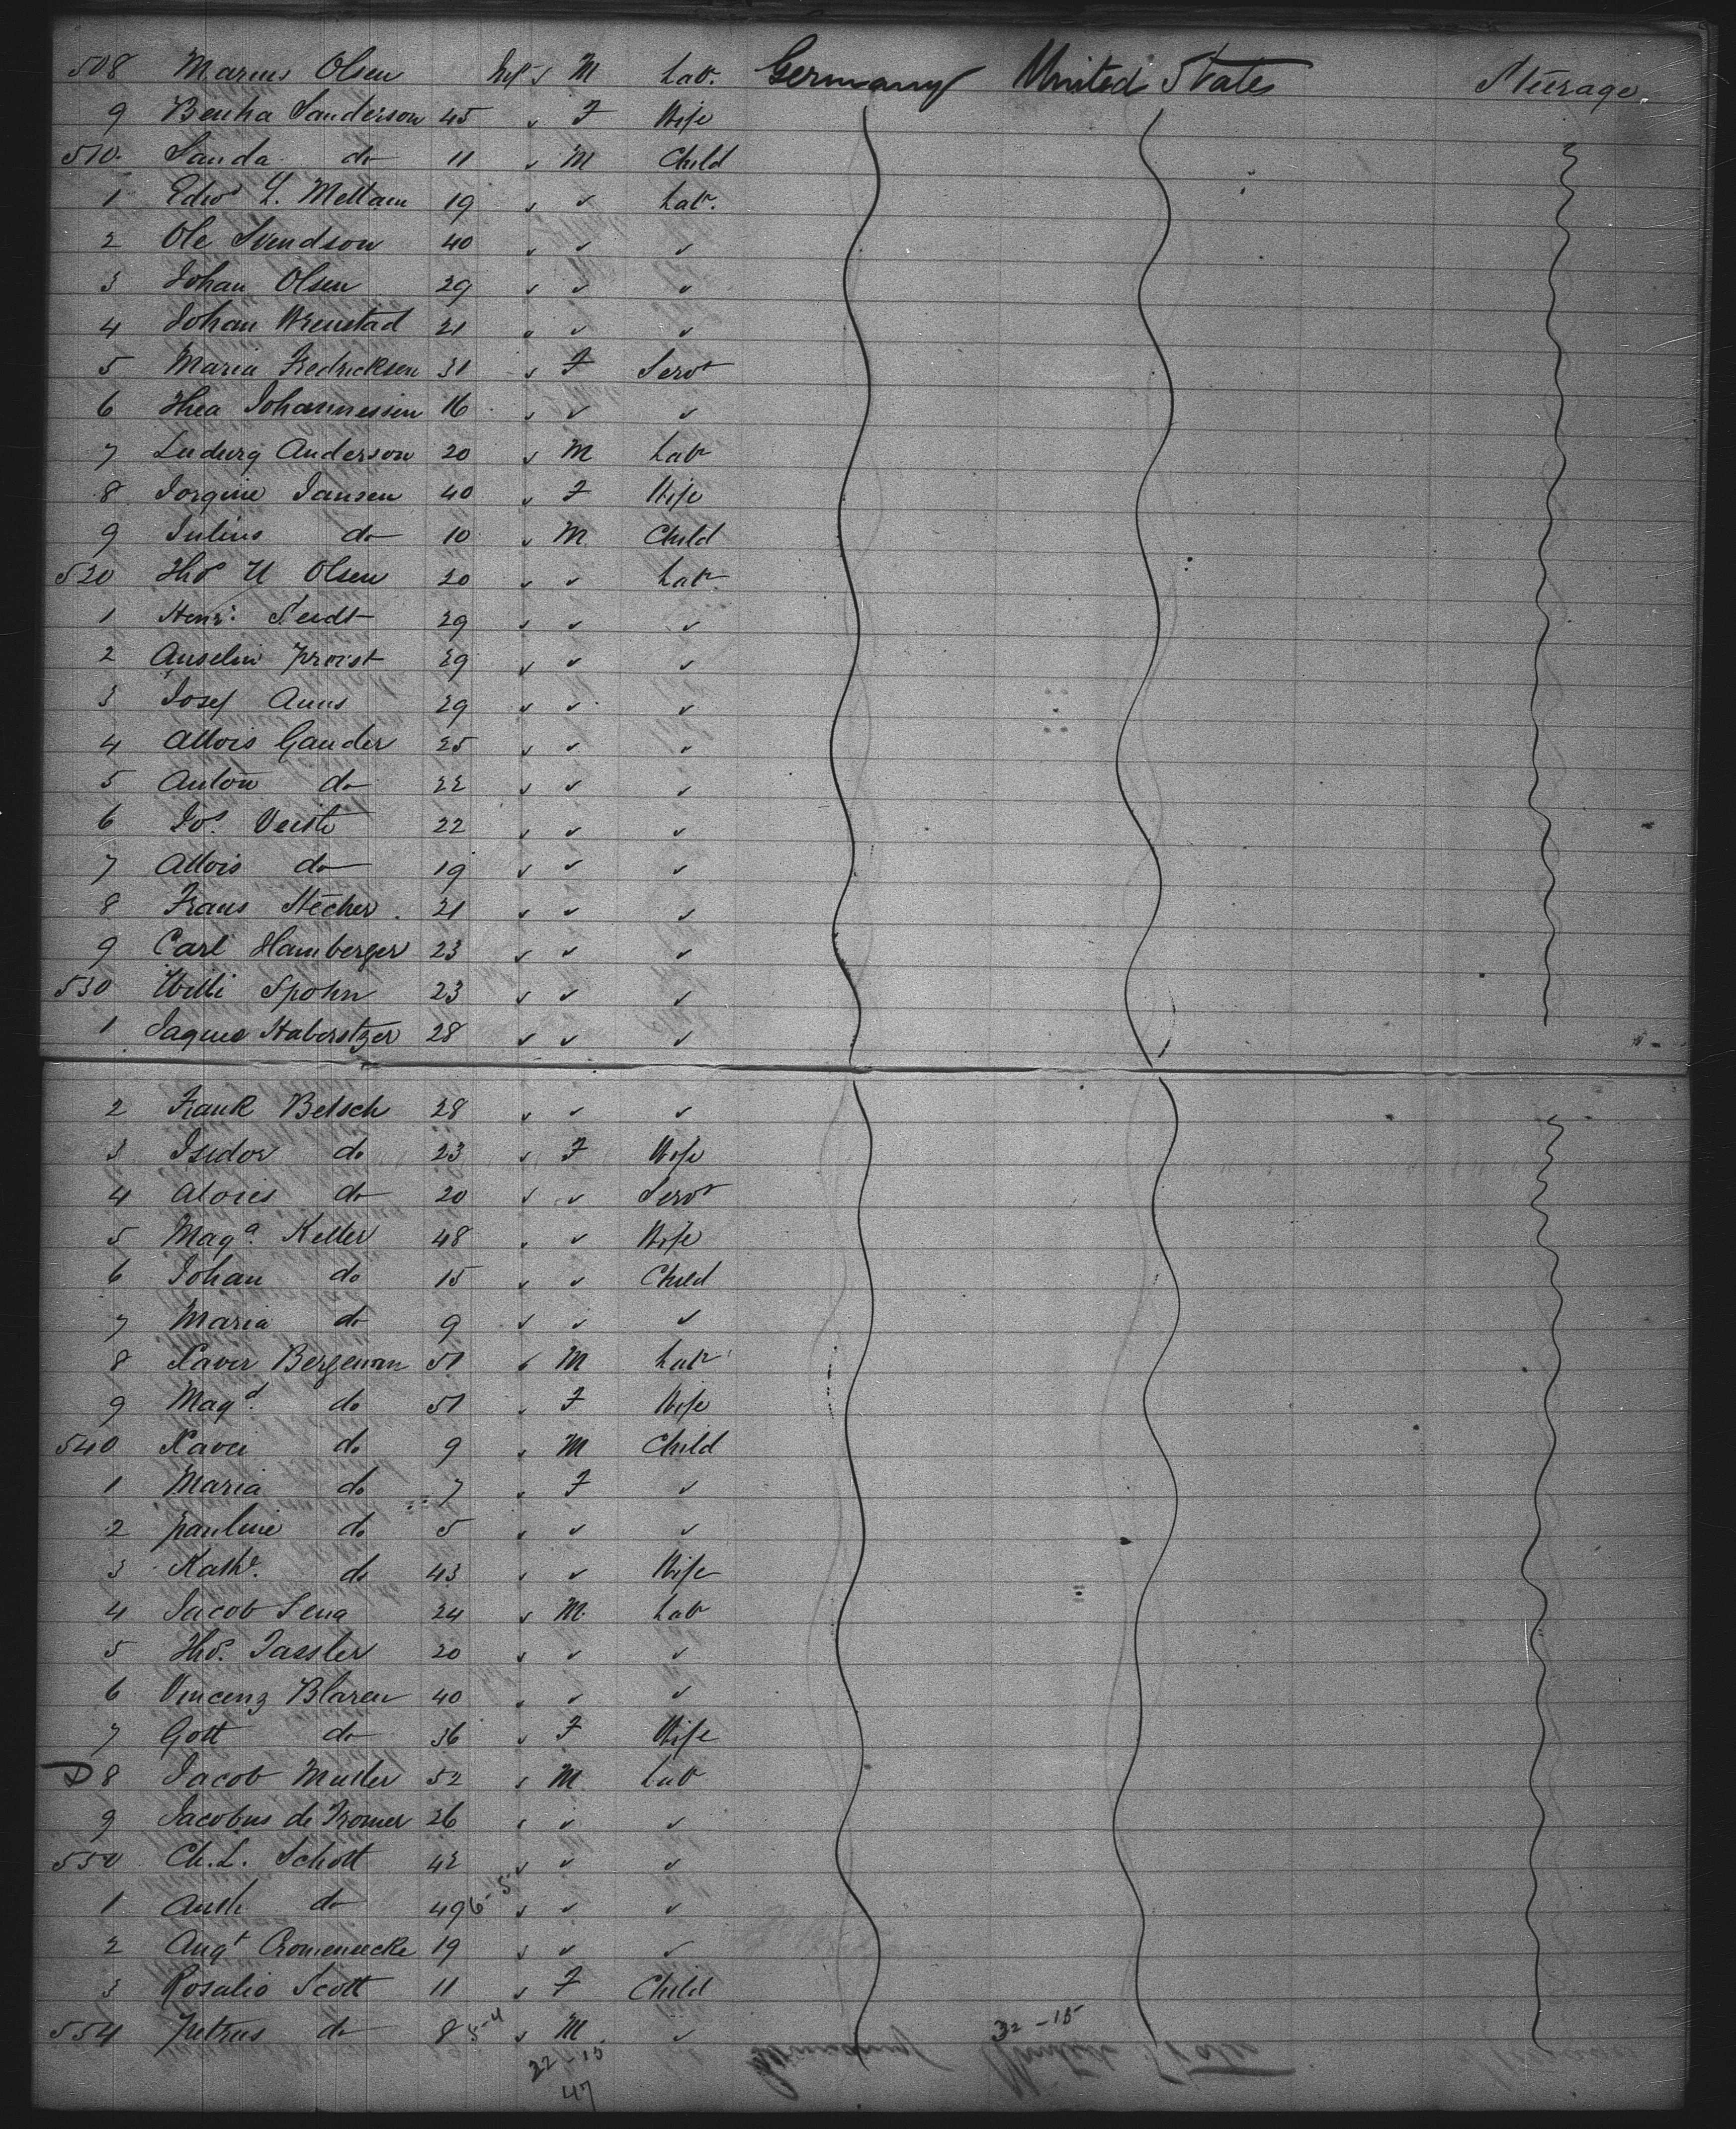 508 Marius Olsen Inf M Lab. Germany United States Steerage
9 Bentha Sanderson 45 " F Wife
510 Sanda do 11 " M Child
1 Edwd L. Mellam 19 " " Labr.
2 Ole Svendson 40 " " "
3 Johan Olsen 29 " " "
4 Johan 21 " " "
5 Maria Fredricksen 31 " F Servt
6 Thea Johannessen 16 " " "
7 Ludwig Anderson 20 " M Labr
8 Jorgine Jansen 40 " F Wife
9 Julius do 10 " M Child
520 Thos U Olsen 20 " " Labr
1 Henr: 29 " " "
2 Anselm Proist 29 " " "
3 Josef 29 " " "
4 Allois Gander 25 " " "
5 Anton do 22 " " "
6 Jos. 22 " " "
7 Allois do 19 " " "
8 Frans Stecher 21 " " "
9 Carl Hamberger 23 " " "
530 Willi Spohn 23 " " "
1 Jaques Haberstzer 28 " " "
2 Frank Betsch 28 " " "
3 Isidor do 23 " F Wife
4 Alois do 20 " " Servt
5 Maga. Keller 48 " " Wife
6 Johan do 15 " " Child
7 Maria do 9 " " "
8 Xaver Bergeman 51 " M Labr
9 Magd. do 51 " F Wife
540 Xaver do 9 " M Child
1 Maria do 7 " F "
2 Pauline do 5 " " "
3 Kathe. do 43 " " Wife
4 Jacob Seng 24 " M Lab
5 Thos. Tassler 20 " " "
6 Vincenz Blaren 40 " " "
7 Gott do 36 " F Wife
8 Jacob Muller 52 " M Lab
9 Jacobus de Tromer 26 " " "
550 Ch. L. Schott 42 " " "
1 do 49 6-5 " " "
2 Augt Cromeneecke 19 " " "
3 Rosalio Scott 11 " F Child
554 Petrus do 8 5-4 " M "
32-15
22-15
47